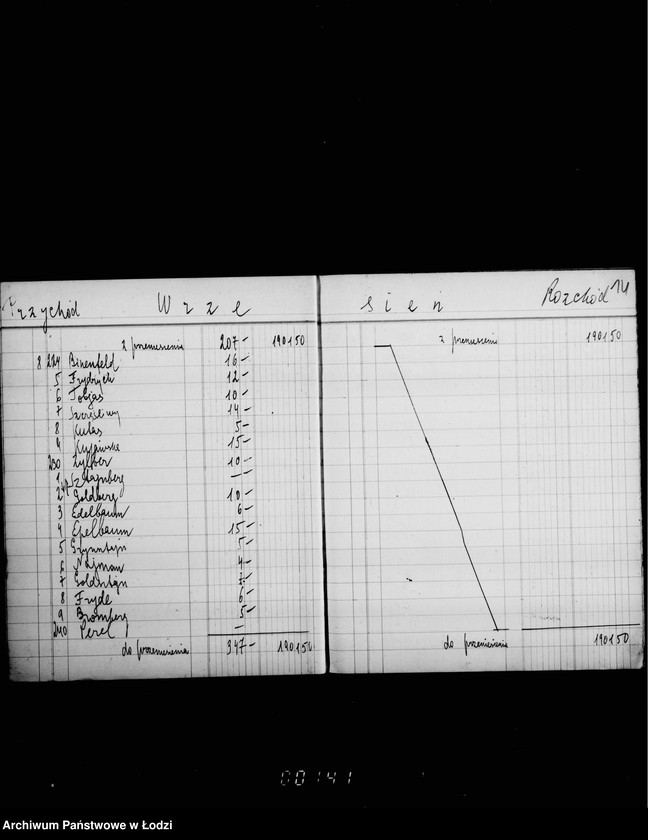 Przychód Wrze
z przeniesienia 207- 190150
8 224 Birenfeld 16-
5 Frydrych 12-
6 Tobjas 10-
7 14-
8 Kutas 5-
15-
230 Zylber 10-
1 Sztaynberg -
2 Goldberg 10-
3 Edelbaum 6-
4 Epelbaum 15-
5 5-
6 Najman 4-
7 Goldsztajn
8 Fryde 6-
9 Bromberg 5-
240 Perel -
do przeniesienia 347- 190150
sień Rozchód 14
z przeniesienia 190150
do przeniesienia 190150
00141
Archiwum Państwowe w Łodzi